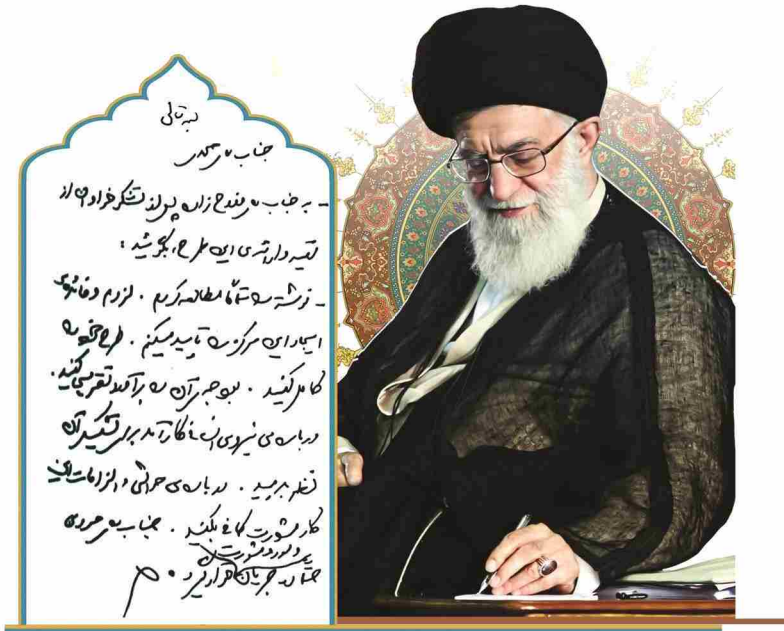 بسمه تعالی
جناب آقای محمدی
- به جناب آقای زاده پس از تشکر فراوان از
تهیه و ارائه‌ی این طرح، بگوئید :
- نوشته را تماماً مطالعه کردم . لزوم و فائده‌ی
ایجاد این مرکز را تایید میکنم . طرح خود را
کامل کنید . بودجه‌ی آن را برآورد تقریبی کنید.
درباره‌ی نیروی انسانی کارآمد برای تشکیل آن
نظر بدهید . درباره‌ی حواشی و الزامات این
کار مشورت کافی بکنید . جناب آقای
حتما در جریان و مورد مشورت قرار گیرد .